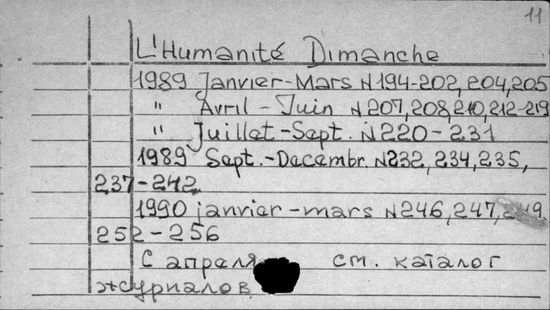 11
L'Humanité Dimanche
1989 Janvier-Mars N194-202, 204, 205
" Avril - Juin N207, 208, 210, 212-219
" Juillet-Sept. N220-231
1989 Sept.-Decembr. N232, 234, 235,
237-242
1990 janvier-mars N246, 247, 249
252-256
С апреля см. каталог
журналов